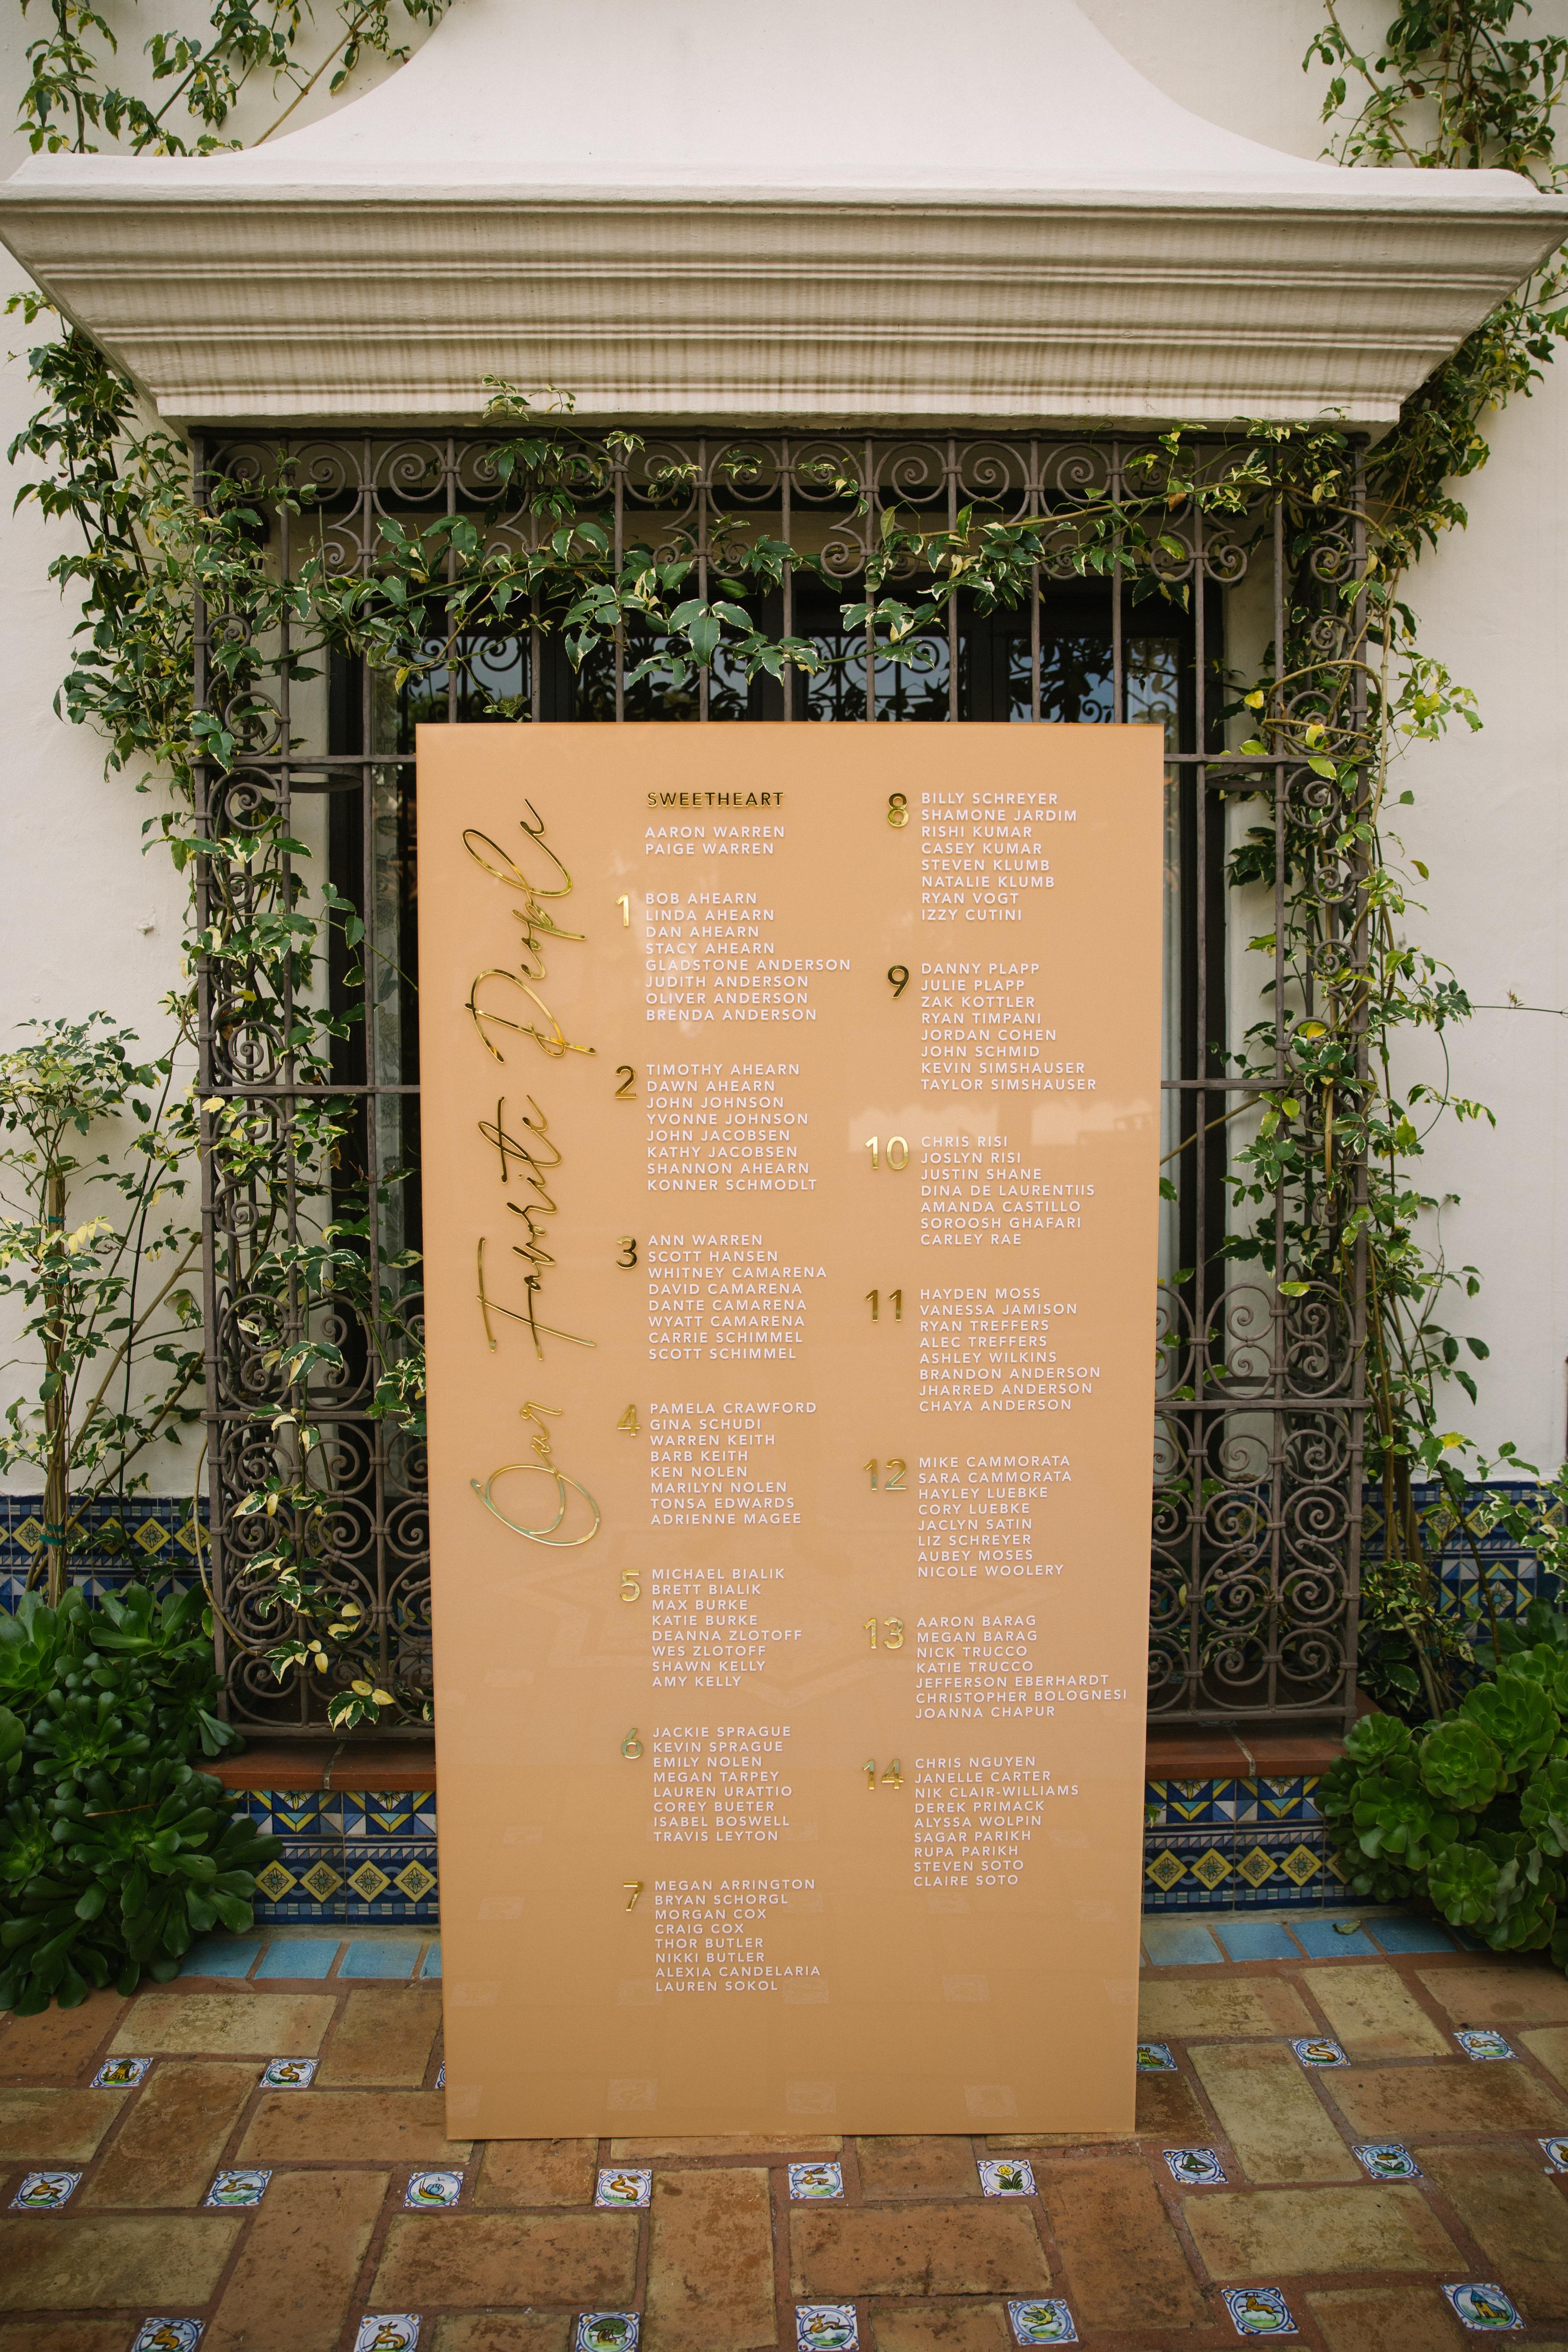 Our Favorite People
SWEETHEART
AARON WARREN
PAIGE WARREN
1
BOB AHEARN
LINDA AHEARN
DAN AHEARN
STACY AHEARN
GLADSTONE ANDERSON
JUDITH ANDERSON
OLIVER ANDERSON
BRENDA ANDERSON
2
TIMOTHY AHEARN
DAWN AHEARN
JOHN JOHNSON
YVONNE JOHNSON
JOHN JACOBSEN
KATHY JACOBSEN
SHANNON AHEARN
KONNER SCHMODLT
3
ANN WARREN
SCOTT HANSEN
WHITNEY CAMARENA
DAVID CAMARENA
DANTE CAMARENA
WYATT CAMARENA
CARRIE SCHIMMEL
SCOTT SCHIMMEL
4
PAMELA CRAWFORD
GINA SCHUDI
WARREN KEITH
BARB KEITH
KEN NOLEN
MARILYN NOLEN
TONSA EDWARDS
ADRIENNE MAGEE
5
MICHAEL BIALIK
BRETT BIALIK
MAX BURKE
KATIE BURKE
DEANNA ZLOTOFF
WES ZLOTOFF
SHAWN KELLY
AMY KELLY
6
JACKIE SPRAGUE
KEVIN SPRAGUE
EMILY NOLEN
MEGAN TARPEY
LAUREN URATTIO
COREY BUETER
ISABEL BOSWELL
TRAVIS LEYTON
7
MEGAN ARRINGTON
BRYAN SCHORGL
MORGAN COX
CRAIG COX
THOR BUTLER
NIKKI BUTLER
ALEXIA CANDELARIA
LAUREN SOKOL
8
BILLY SCHREYER
SHAMONE JARDIM
RISHI KUMAR
CASEY KUMAR
STEVEN KLUMB
NATALIE KLUMB
RYAN VOGT
IZZY CUTINI
9
DANNY PLAPP
JULIE PLAPP
ZAK KOTTLER
RYAN TIMPANI
JORDAN COHEN
JOHN SCHMID
KEVIN SIMSHAUSER
TAYLOR SIMSHAUSER
10
CHRIS RISI
JOSLYN RISI
JUSTIN SHANE
DINA DE LAURENTIIS
AMANDA CASTILLO
SOROOSH GHAFARI
CARLEY RAE
11
HAYDEN MOSS
VANESSA JAMISON
RYAN TREFFERS
ALEC TREFFERS
ASHLEY WILKINS
BRANDON ANDERSON
JHARRED ANDERSON
CHAYA ANDERSON
12
MIKE CAMMORATA
SARA CAMMORATA
HAYLEY LUEBKE
CORY LUEBKE
JACLYN SATIN
LIZ SCHREYER
AUBEY MOSES
NICOLE WOOLERY
13
AARON BARAG
MEGAN BARAG
NICK TRUCCO
KATIE TRUCCO
JEFFERSON EBERHARDT
CHRISTOPHER BOLOGNESI
JOANNA CHAPUR
14
CHRIS NGUYEN
JANELLE CARTER
NIK CLAIR-WILLIAMS
DEREK PRIMACK
ALYSSA WOLPIN
SAGAR PARIKH
RUPA PARIKH
STEVEN SOTO
CLAIRE SOTO